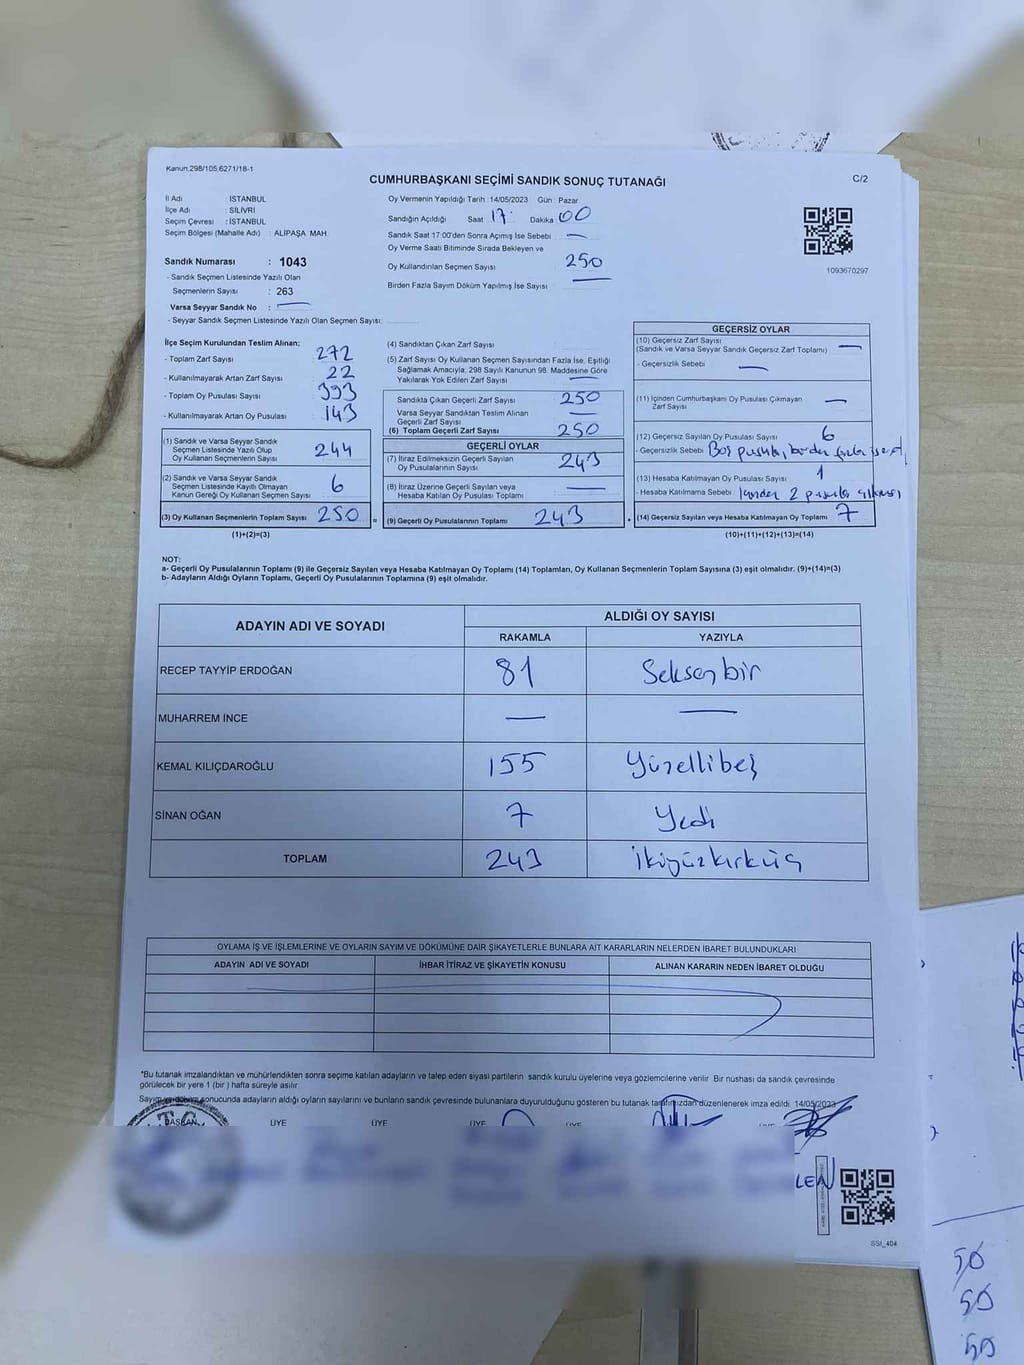 Kanun,298/105;6271/18-1
C/2
CUMHURBAŞKANI SEÇİMİ SANDIK SONUÇ TUTANAĞI
İl Adı : İSTANBUL
İlçe Adı : SİLİVRİ
Seçim Çevresi : İSTANBUL
Seçim Bölgesi (Mahalle Adı) : ALİPAŞA MAH.
Sandık Numarası : 1043
- Sandık Seçmen Listesinde Yazılı Olan
Seçmenlerin Sayısı : 263
Varsa Seyyar Sandık No : —
- Seyyar Sandık Seçmen Listesinde Yazılı Olan Seçmen Sayısı:
Oy Vermenin Yapıldığı Tarih :14/05/2023 Gün : Pazar
Sandığın Açıldığı Saat 17: Dakika :00
Sandık Saat 17:00'den Sonra Açımış İse Sebebi : —
Oy Verme Saati Bitiminde Sırada Bekleyen ve
Oy Kullandırılan Seçmen Sayısı 250
Birden Fazla Sayım Döküm Yapılmış İse Sayısı : —
1093670297
İlçe Seçim Kurulundan Teslim Alınan;
- Toplam Zarf Sayısı : 272
- Kullanılmayarak Artan Zarf Sayısı : 22
- Toplam Oy Pusulası Sayısı : 393
- Kullanılmayarak Artan Oy Pusulası : 143
(1) Sandık ve Varsa Seyyar Sandık
Seçmen Listesinde Yazılı Olup
Oy Kullanan Seçmenlerin Sayısı : 244
(2) Sandık ve Varsa Seyyar Sandık
Seçmen Listesinde Kayıtlı Olmayan
Kanun Gereği Oy Kullanan Seçmen Sayısı : 6
(3) Oy Kullanan Seçmenlerin Toplam Sayısı : 250 =
(1)+(2)=(3)
(4) Sandıktan Çıkan Zarf Sayısı
(5) Zarf Sayısı Oy Kullanan Seçmen Sayısından Fazla İse, Eşitliği
Sağlamak Amacıyla, 298 Sayılı Kanunun 98. Maddesine Göre
Yakılarak Yok Edilen Zarf Sayısı : —
Sandıkta Çıkan Geçerli Zarf Sayısı : 250
Varsa Seyyar Sandıktan Teslim Alınan
Geçerli Zarf Sayısı : —
(6) Toplam Geçerli Zarf Sayısı : 250
GEÇERLİ OYLAR
(7) İtiraz Edilmeksizin Geçerli Sayılan
Oy Pusulalarının Sayısı : 243
(8) İtiraz Üzerine Geçerli Sayılan veya
Hesaba Katılan Oy Pusulaları Toplamı : —
(9) Geçerli Oy Pusulalarının Toplamı : 243 +
GEÇERSİZ OYLAR
(10) Geçersiz Zarf Sayısı
(Sandık ve Varsa Seyyar Sandık Geçersiz Zarf Toplamı) : —
- Geçersizlik Sebebi : —
(11) İçinden Cumhurbaşkanı Oy Pusulası Çıkmayan
Zarf Sayısı : —
(12) Geçersiz Sayılan Oy Pusulası Sayısı : 6
- Geçersizlik Sebebi : Boş pusula, birden fazla
(13) Hesaba Katılmayan Oy Pusulası Sayısı : 1
- Hesaba Katılmama Sebebi : 2 pusula çıkması
(14) Geçersiz Sayılan veya Hesaba Katılmayan Oy Toplamı : 7
(10)+(11)+(12)+(13)=(14)
NOT:
a- Geçerli Oy Pusulalarının Toplamı (9) ile Geçersiz Sayılan veya Hesaba Katılmayan Oy Toplamı (14) Toplamları, Oy Kullanan Seçmenlerin Toplam Sayısına (3) eşit olmalıdır. (9)+(14)=(3)
b- Adayların Aldığı Oyların Toplamı, Geçerli Oy Pusulalarının Toplamına (9) eşit olmalıdır.
ADAYIN ADI VE SOYADI
ALDIĞI OY SAYISI
RAKAMLA YAZIYLA
RECEP TAYYİP ERDOĞAN 81 Seksenbir
MUHARREM İNCE — —
KEMAL KILIÇDAROĞLU 155 Yüzellibeş
SİNAN OĞAN 7 Yedi
TOPLAM 243 İkiyüzkırküç
OYLAMA İŞ VE İŞLEMLERİNE VE OYLARIN SAYIM VE DÖKÜMÜNE DAİR ŞİKAYETLERLE BUNLARA AİT KARARLARIN NELERDEN İBARET BULUNDUKLARI
ADAYIN ADI VE SOYADI İHBAR İTİRAZ VE ŞİKAYETİN KONUSU ALINAN KARARIN NEDEN İBARET OLDUĞU
*Bu tutanak imzalandıktan ve mühürlendikten sonra seçime katılan adayların ve talep eden siyasi partilerin sandık kurulu üyelerine veya gözlemcilerine verilir. Bir nüshası da sandık çevresinde
görülecek bir yere 1 (bir ) hafta süreyle asılır.
Sayım ve döküm sonucunda adayların aldığı oyların sayılarını ve bunların sandık çevresinde bulunanlara duyurulduğunu gösteren bu tutanak tarafımızdan düzenlenerek imza edildi. 14/05/2023
BAŞKAN ÜYE ÜYE ÜYE ÜYE
T.C.
LEN
SSI_404
50
50
50